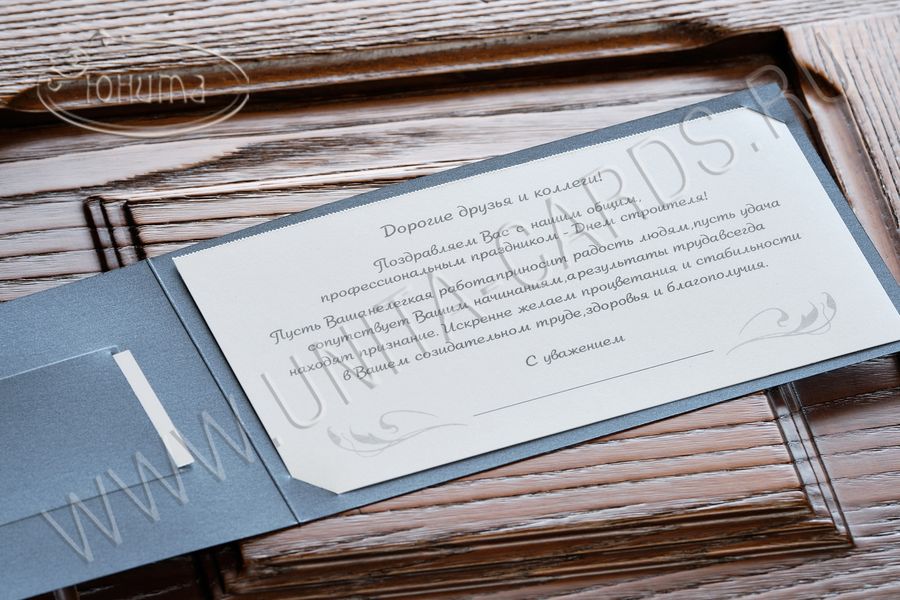 Юнита
Дорогие друзья и коллеги!
Поздравляем Вас с нашим общим,
профессиональным праздником - Днем строителя!
Пусть Ваша нелегкая работа приносит радость людям, пусть удача
сопутствует Вашим начинаниям, а результаты труда всегда
находят признание. Искренне желаем процветания и стабильности
в Вашем созидательном труде, здоровья и благополучия.
С уважением
WWW.UNITA-CARDS.RU